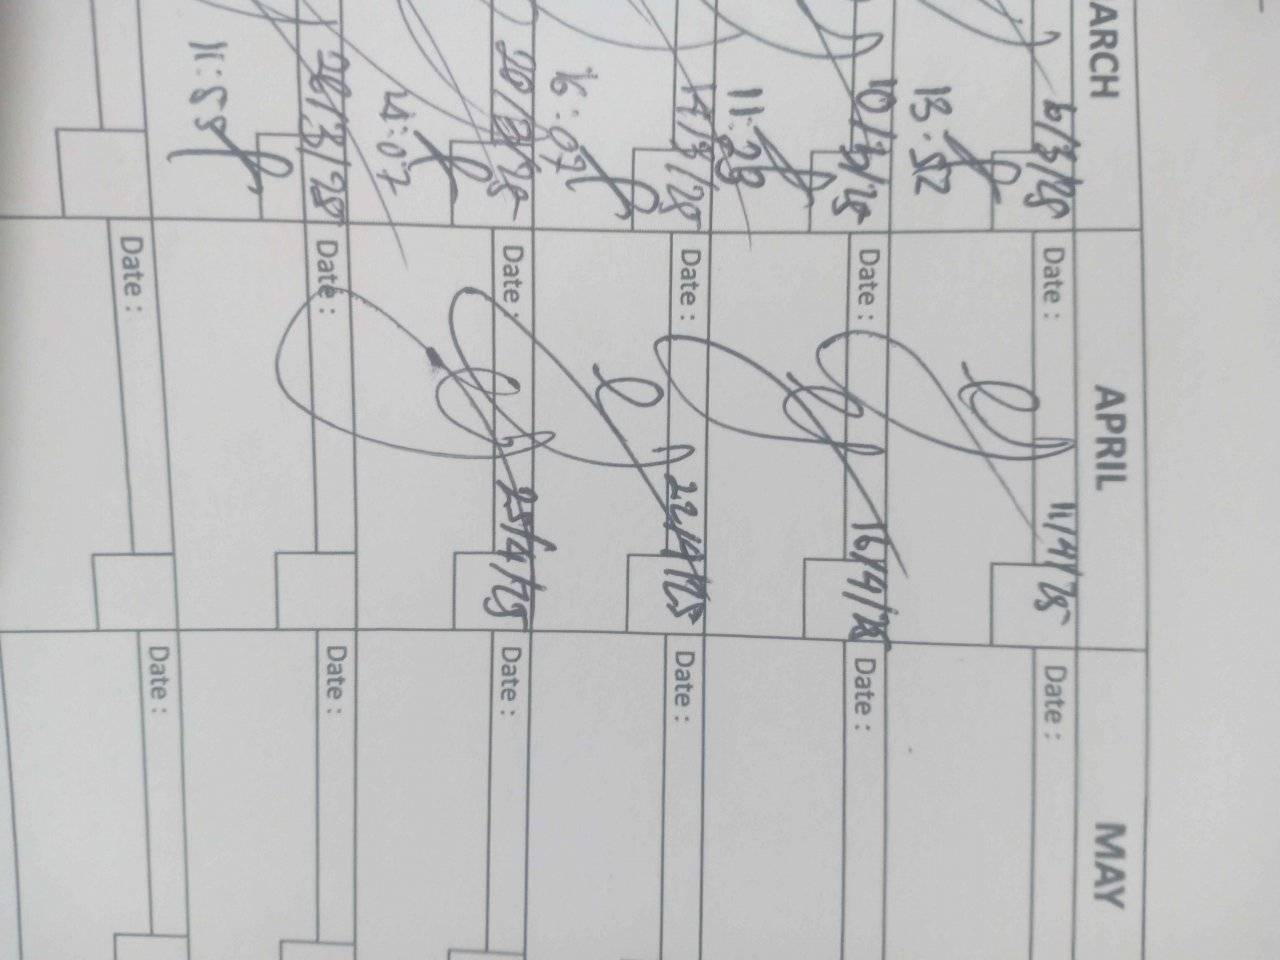 ARCH APRIL MAY
6/3/25 Date : 11/4/25 Date :
13:52
10/3/25 Date : 16/4/25 Date :
11:29
14/3/25 Date : 22/4/25 Date :
16:07
20/3/25 Date : 25/4/25 Date :
26/3/25 Date : Date :
11:55
Date : Date :